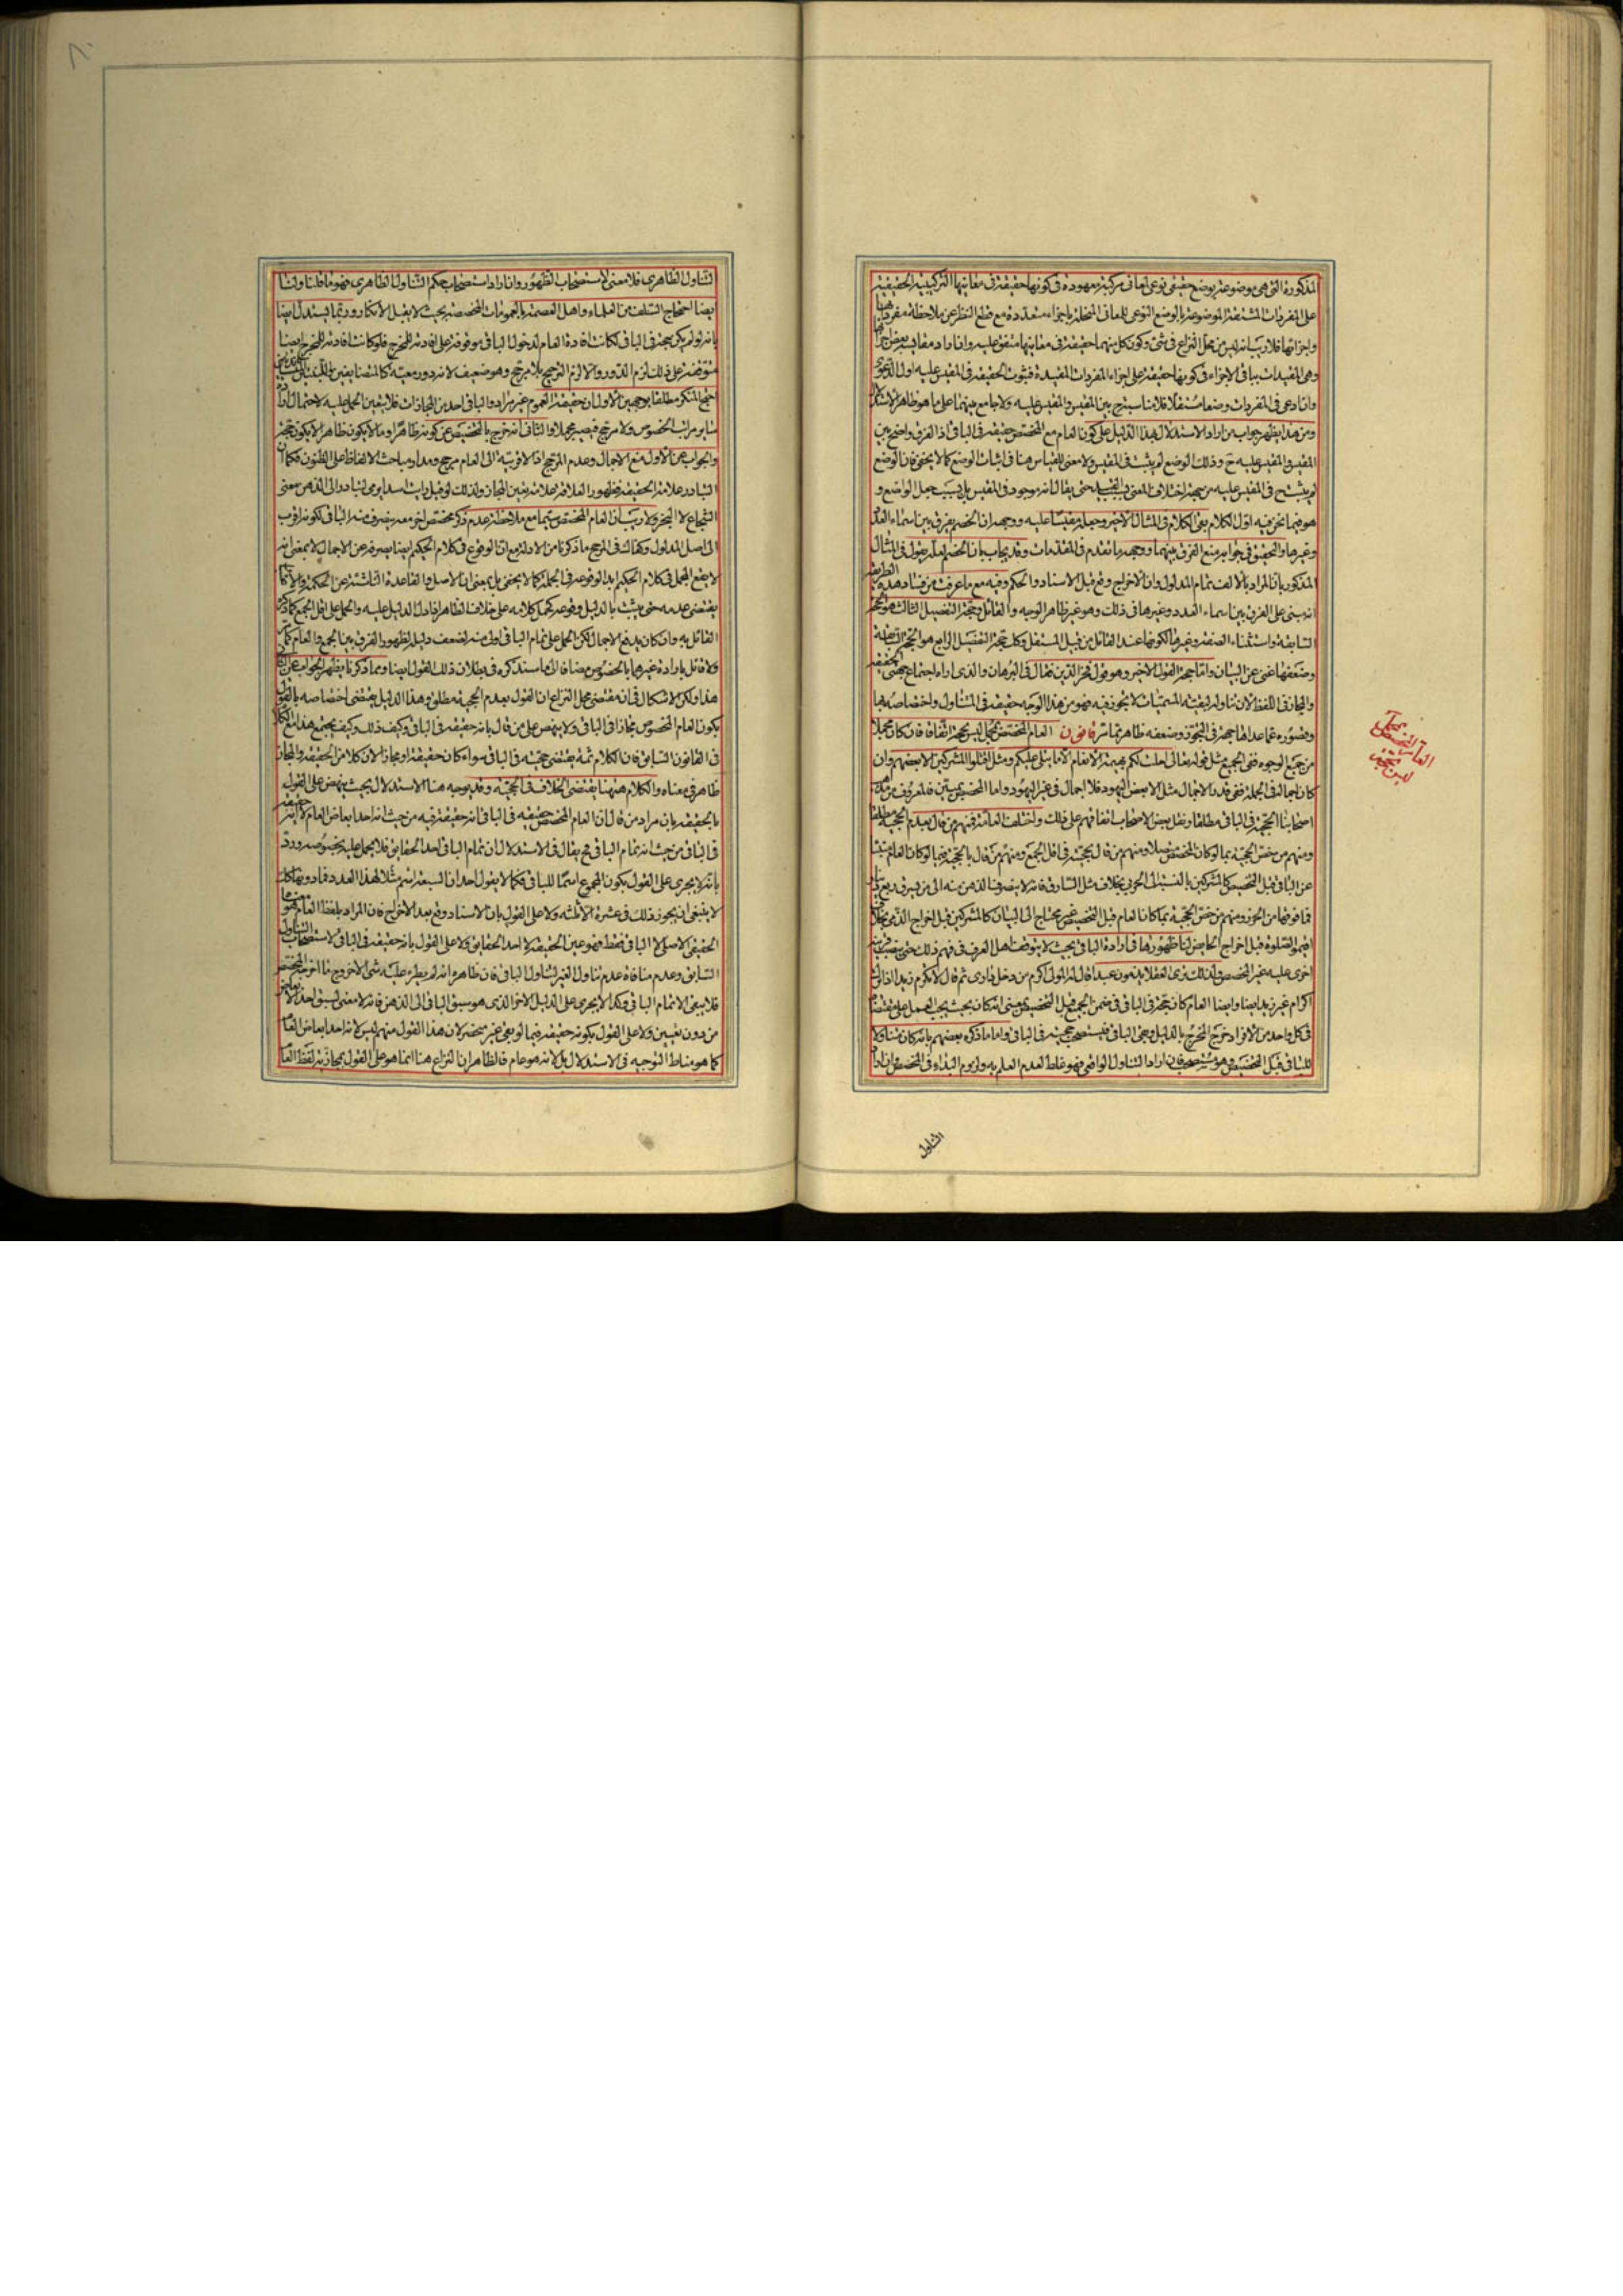 المذكورة التى هى موضوعة بوضع حقيقى نوعى لمعانى مركبة معهودة فى كونها حقيقة فى معانيها التركيبية الحقيقية
على المفردات المشتقة الموضوعة بالوضع النوعى للمعانى المنحلة باجزاء متعددة مع قطع النظر عن ملاحظة مفرداتها
واجزائها فلا ريب انه ليس من محل النزاع فى شئ وكون كل منهما حقيقة فى معانيها متفق عليه وان اراد مقايسة بعض اجزائها
وهى المقيدات بباقى الاجزاء فى كونها حقيقة على اجزاء المفردات المقيدة فثبوت الحقيقة فى المقيس عليه اول الدعوى
وان ادعى فى المفردات وضعا مستقلا فلا مناسبة ح بين المقيس والمقيس عليه ولا جامع بينهما على ما هو ظاهر الاستدلال
ومن هذا يظهر جواب من اراد الاستدلال بهذا الدليل على كون العام مع المخصص حقيقة فى الباقى اذ الفرق واضح بين
المقيس والمقيس عليه ح وذلك الوضع لم يثبت فى المقيس ولا معنى للقياس هنا فى اثبات الوضع كما لا يخفى فان الوضع
لم يثبت ح فى المقيس عليه من جهة اختلاف المعنى حتى يقال انه موجود فى المقيس بل بسبب جعل الواضع و
هو فيما نحن فيه اول الكلام بقى الكلام فى المثال الاخير وجعله مقيسا عليه ووجهه ان الخصم يفرق بين اسماء العدد
وغيرها والتحقيق فى جوابه منع الفرق بينهما ووجهه ما تقدم فى المقدمات وقد يجاب بان الخصم لعله يقول فى المثال
المذكور بان المراد بالالف تمام المدلول وان الاخراج وقع قبل الاسناد والحكم وفيه مع ما عرفت من فساد هذه الطريقة
انه يبتنى على الفرق بين اسماء العدد وغيرها فى ذلك وهو غير ظاهر الوجه والقائل وحجة التفصيل الثالث هو الحجة
السابقة واستثناء الصفة وغيرها لكونها عند القائل من قبيل المستقل وكل حجة التفصيل الرابع هو الحجة السابقة
وضعفها غنى عن البيان واما حجة القول الاخير وهو قول فخر الدين فقال فى البرهان والذى اراه اجتماع جهتى الحقيقة
والمجاز فى اللفظ لان تناوله لبقية المسميات لا تجوز فيه فهو من هذا الوجه حقيقة فى المتناول واختصاصه بها
وقصوره عما عداها جهة فى التجوز وضعفه ظاهر مما مر قانون العام المخصص بمجمل ليس بحجة اتفاقا فان كان مجملا
من جميع الوجوه ففى الجميع مثل قوله تعالى احلت لكم بهيمة الانعام الا ما يتلى عليكم ومثل اقتلوا المشركين الا بعضهم وان
كان اجماله فى الجملة ففى قدر الاجمال مثل الا بعض اليهود فلا اجمال فى غير اليهود واما المخصص بمبين فالمعروف من مذهب
اصحابنا الحجية فى الباقى مطلقا ونقل بعض الاصحاب اتفاقهم على ذلك واختلف العامة فمنهم من قال بعدم الحجية مطلقا
ومنهم من خص الحجية بما لو كان المخصص متصلا ومنهم من قال بحجيته فى اقل الجمع ومنهم من قال بالحجية فيما لو كان العام منبئا
عن الباقى قبل التخصيص كالمشركين بالنسبة الى الحربى بخلاف مثل السارق فانه لا ينصرف الذهن منه الى من يسرق ربع دينار
فما فوقها من الحرز ومنهم من خص الحجية بما كان العام قبل التخصيص غير محتاج الى البيان كالمشركين قبل اخراج الذمى بخلاف
اقيموا الصلوة قبل اخراج الحائض لنا ظهورها فى ارادة الباقى بحيث لا يتوقف اهل العرف فى فهم ذلك حتى ينصب قرينة
اخرى عليه غير المخصص ولذلك ترى العقلاء يذمون عبدا قال له المولى اكرم من دخل دارى ثم قال لا تكرم زيدا اذا ترك
اكرام غير زيد ايضا وايضا العام كان حجة فى الباقى فى ضمن الجميع قبل التخصيص بمعنى انه كان بحيث يجب العمل على مقتضاه
فى كل واحد من الافراد خرج المخرج بالدليل وبقى الباقى فيستصحب حجيته فى الباقى واما ما ذكره بعضهم بانه كان متناولا
للباقى قبل التخصيص وهو مستصحب فان اراد التناول الواقعى فهو غلط لعدم العلم به ولزوم البداء فى المخصص وان اراد
العام المخصص بمجمل
ليس بحجة
التناول
التناول الظاهرى فلا معنى لاستصحاب الظهور وان اراد استصحاب حكم التناول الظاهرى فهو ما قلنا ولنا
ايضا احتجاج السلف من العلماء واهل العصمة بالعمومات المخصصة بحيث لا يقبل الانكار وربما يستدل ايضا
بانه لو لم يكن حجة فى الباقى لكانت افادة العام لدخول الباقى موقوفة على افادته للمخرج فلو كانت افادته للمخرج ايضا
متوقفة على ذلك لزم الدور والا لزم الترجيح بلا مرجح وهو ضعيف لانه دور معية كالمتضايفين
احتج المنكر مطلقا بوجهين الاول ان حقيقة العموم غير مراد والباقى احد من المجازات فلا يتعين الحمل عليه لاحتمال ارادة
سائر مراتب الخصوص ولا مرجح فيصير مجملا والثانى انه خرج بالتخصيص عن كونه ظاهرا وما لا يكون ظاهرا لا يكون حجة
والجواب عن الاول منع الاجمال وعدم المرجح اذ الاقربية الى العام مرجح ومدار مباحث الالفاظ على الظنون فكما ان
التبادر علامة الحقيقة فظهور العلاقة علامة تعين المجاز ولذلك لو قيل رايت اسدا يرمى لتبادر الى الذهن معنى
الشجاع لا البخر ولا ريب ان العام المخصص سيما مع ملاحظة عدم ذكر مخصص اخر معه ينصرف منه الباقى لكونه اقرب
الى اصل المدلول وكفاك فى المرجح ما ذكرنا من الادلة مع ان الوقوع فى كلام الحكيم ايضا يصرفه عن الاجمال لا بمعنى انه
لا يقع المجمل فى كلام الحكيم ابدا لوقوعه فى الجملة كما لا يخفى بل بمعنى ان الاصل والقاعدة الناشئة عن الحكمة
يقتضى عدمه حتى يثبت بالدليل وقوعه كما ان كلامه على خلاف الظاهر اذا دل الدليل عليه والحمل على اقل الجمع كما ذكره
القائل به وان كان يدفع الاجمال لكن الحمل على تمام الباقى اولى منه لضعف دليله لظهور الفرق بين الجمع والعام كما مر
ولا قائل بارادة غيرهما بالخصوص مضافا الى ما سنذكره فى بطلان ذلك القول ايضا ومما ذكرنا يظهر الجواب عن الثانى
هذا ولكن الاشكال فى ان مقتضى محل النزاع ان القول بعدم الحجية مطلق وهذا الدليل يقتضى اختصاصه بالقول
بكون العام المخصوص مجازا فى الباقى ولا ينهض على من قال بانه حقيقة فى الباقى وكيف ذلك وكيف يجتمع هذا مع الكلام
فى القانون السابق فان الكلام ثمة يقتضى حجيته فى الباقى سواء كان حقيقة او مجازا لان كلا من الحقيقة والمجاز
ظاهر فى معناه والكلام هيهنا يقتضى الخلاف فى الحجية وقد يوجه هنا الاستدلال بحيث ينهض على القول
بالحقيقة بان مراد من قال ان العام المخصص حقيقة فى الباقى انه حقيقة فيه من حيث انه احد ابعاض العام لا انه حقيقة
فى الباقى من حيث انه تمام الباقى فح يقال فى الاستدلال ان تمام الباقى احد الحقايق فلا يحمل عليه بخصوصه ورد
بانه لا يجرى على القول بكون المجموع اسما للباقى فكما لا يقول احد ان السبعة اسم مثلا لهذا العدد فما دونها كك
لا ينبغى ان يجوز ذلك فى عشرة الا ثلثة ولا على القول بان الاسناد وقع بعد الاخراج فان المراد بلفظ العام هو معناه
الحقيقى الاصلى لا الباقى فقط فهو عين الحقيقة لا احد الحقايق ولا على القول بانه حقيقة فى الباقى لاستصحاب التناول
السابق وعدم منافاة عدم تناول الغير لتناول الباقى فان ظاهره انه لم يطرء عليه شئ الا خروج ما اخرجه المخصص
فلا يبقى الا تمام الباقى وكذا لا يجرى على الدليل الاخر الذى هو سبق الباقى الى الذهن فانه لا معنى لسبق احد الابعاض
من دون تعيين ولا على القول بكونه حقيقة فيما لو بقى غير منحصر لان هذا القول منهم ليس لانه احد ابعاض العام
كما هو مناط التوجيه فى الاستدلال بل لانه هو عام فالظاهر ان النزاع هنا انما هو على القول بمجازية لفظ العام